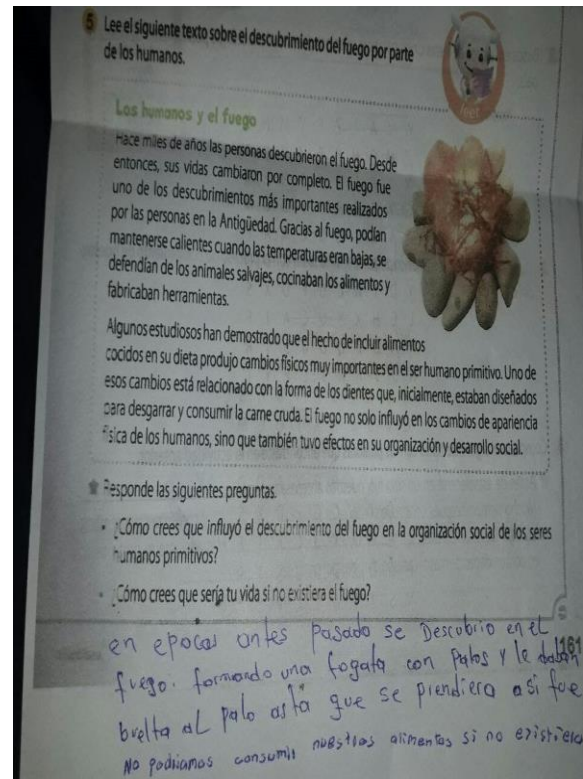 5 Lee el siguiente texto sobre el descubrimiento del fuego por parte
de los humanos.
Los humanos y el fuego
Hace miles de años las personas descubrieron el fuego. Desde
entonces, sus vidas cambiaron por completo. El fuego fue
uno de los descubrimientos más importantes realizados
por las personas en la Antigüedad. Gracias al fuego, podían
mantenerse calientes cuando las temperaturas eran bajas, se
defendían de los animales salvajes, cocinaban los alimentos y
fabricaban herramientas.
Algunos estudiosos han demostrado que el hecho de incluir alimentos
cocidos en su dieta produjo cambios físicos muy importantes en el ser humano primitivo. Uno de
esos cambios está relacionado con la forma de los dientes que, inicialmente, estaban diseñados
para desgarrar y consumir la carne cruda. El fuego no solo influyó en los cambios de apariencia
física de los humanos, sino que también tuvo efectos en su organización y desarrollo social.
Responde las siguientes preguntas.
• ¿Cómo crees que influyó el descubrimiento del fuego en la organización social de los seres
humanos primitivos?
• ¿Cómo crees que sería tu vida si no existiera el fuego?
161
en epocas antes pasado se Descubrio en el
fuego. formando una fogata con palos y le daban
buelta al palo asta que se prendiera asi fue
No podriamos consumir nuestros alimentos si no existiera